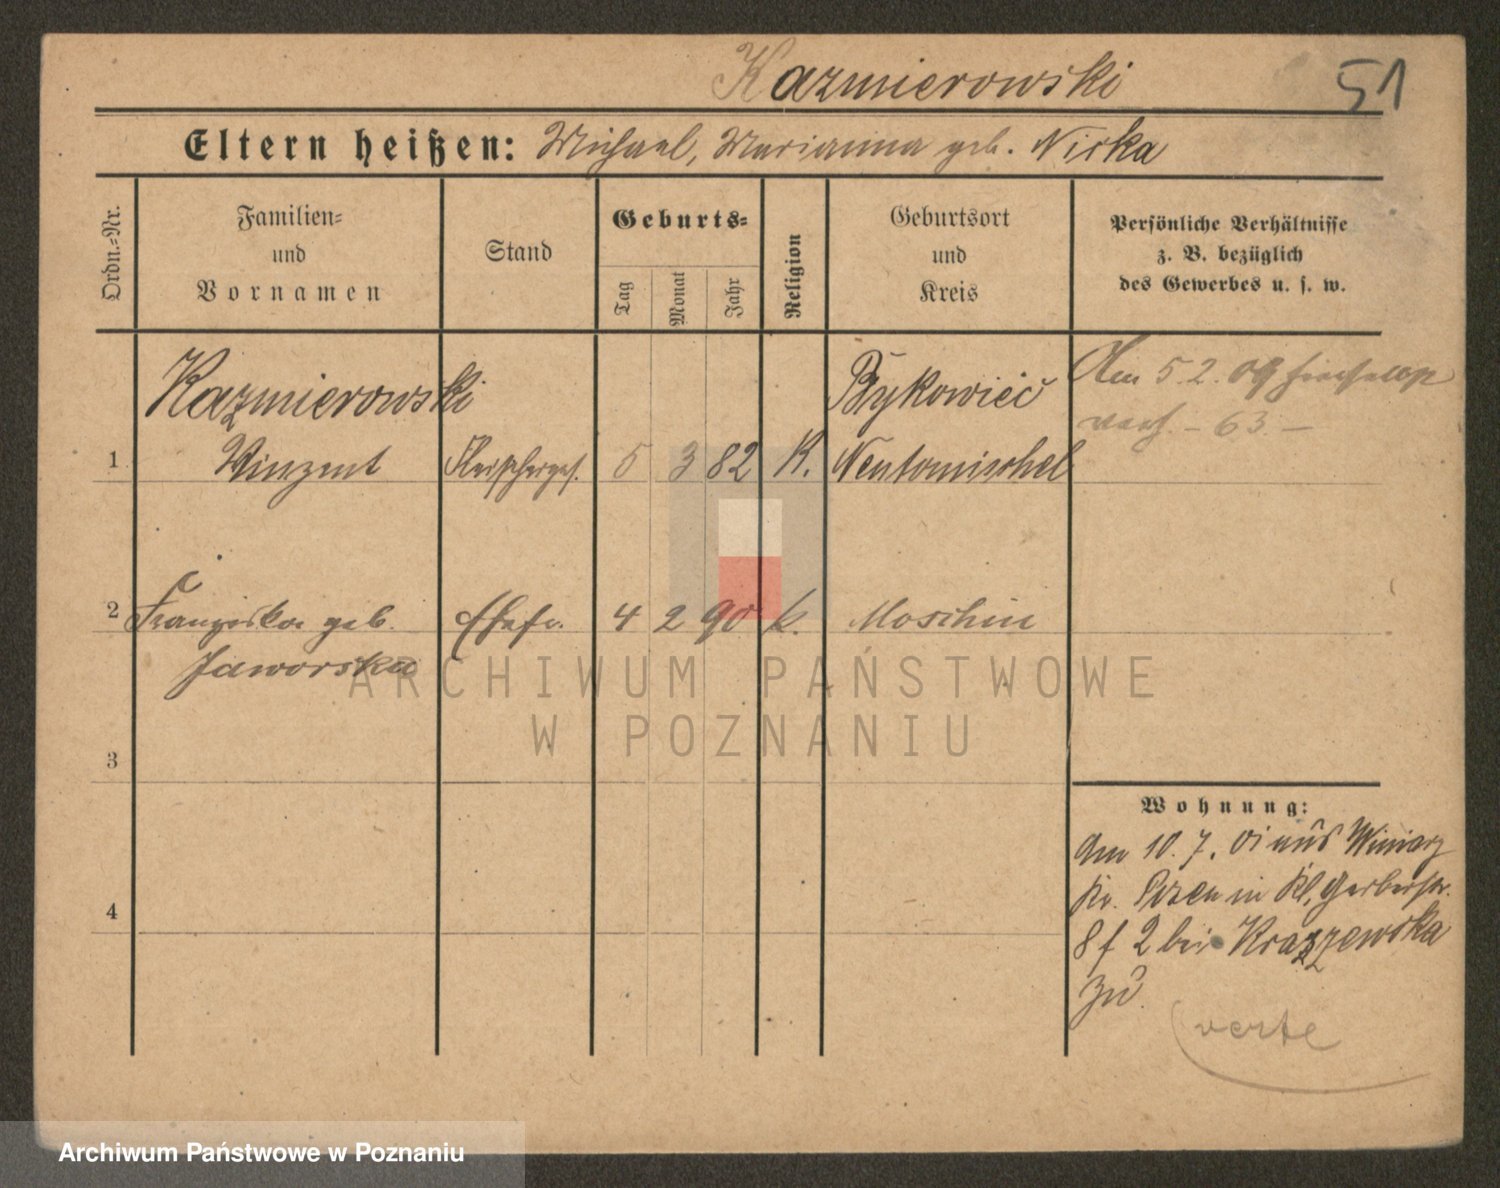 Kazmierowski 51
Eltern heißen: Michael, Marianna geb. Nirka
Ordn.=Nr.
Familien=
und
Vornamen
Stand
Geburts=
Tag
Monat
Jahr
Religion
Geburtsort
und
Kreis
Persönliche Verhältnisse
z. B. bezüglich
des Gewerbes u. s. w.
Kazmierowski
1 Winzent Fleischerges. 5 3 82 K. Neutomischel
Am 5. 2. 09
- 63. -
2 Franziska geb. Ehefr. 4 2 90 k. Moschin
Jaworska
3
4
Wohnung:
Am 10. 7. 01 aus Winiary
Kr. Posen in Kl. Gerberstr.
8 f 2 bei Kraszewska
zu
verte
ARCHIWUM PAŃSTWOWE
W POZNANIU
Archiwum Państwowe w Poznaniu